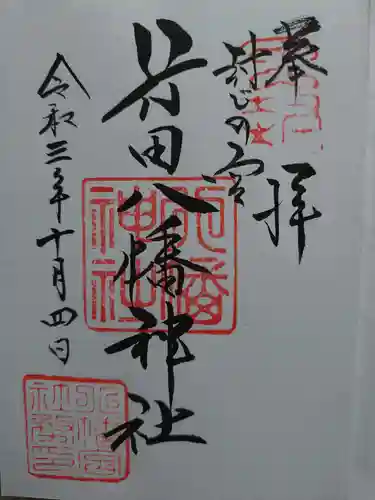 奉拝
封じの宮
行田八幡神社
八幡神社
令和三年十月四日